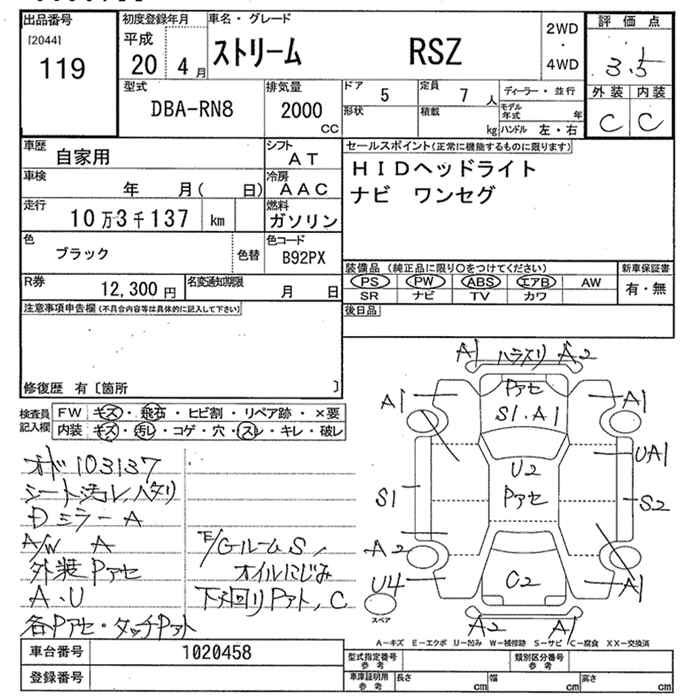 出品番号
[2044]
119
初度登録年月
平成
20 4 月
車名・グレード
ストリーム RSZ
2WD
・
4WD
評価点
3.5
外装 内装
C C
型式
DBA-RN8
排気量
2000
CC
ドア 5
定員 7 人
形状
積載 kg
ディーラー・並行
モデル年式 年
ハンドル 左・右
車歴
自家用
シフト
AT
車検
年 月( 日)
冷房
AAC
走行
10万3千137 km
燃料
ガソリン
色
ブラック
色替
色コード
B92PX
R券
12,300 円
名変通知期限
月 日
セールスポイント(正常に機能するものに限ります)
HIDヘッドライト
ナビ ワンセグ
装備品 (純正品に限り○をつけてください)
PS PW ABS エアB AW
SR ナビ TV カワ
新車保証書
有・無
後日品
注意事項申告欄(不具合内容等は具体的に記入して下さい)
修復歴 有〔箇所 〕
検査員
記入欄
FW キズ・飛石・ヒビ割・リペア跡・×要
内装 キズ・汚レ・コゲ・穴・スレ・キレ・破レ
オド103137
シート汚レ、ヘタリ
Dミラー A
A/W A
外装Pアセ
A・U
各Pアセ・タッチPアト
E/Gルーム S、
オイルにじみ
下回りPアト、C
A1 ハラスリ A2
A1 Pアセ A1
S1.A1
UA1
U2
Pアセ
S1 S2
A2
U4 C2 A1
スペア
A2 A1
A-キズ E-エクボ U-凹み W-補修跡 S-サビ C-腐食 XX-交換済
車台番号 1020458
登録番号
型式指定番号
参考
類別区分番号
参考
車庫証明用
参考
長さ cm
幅 cm
高さ cm